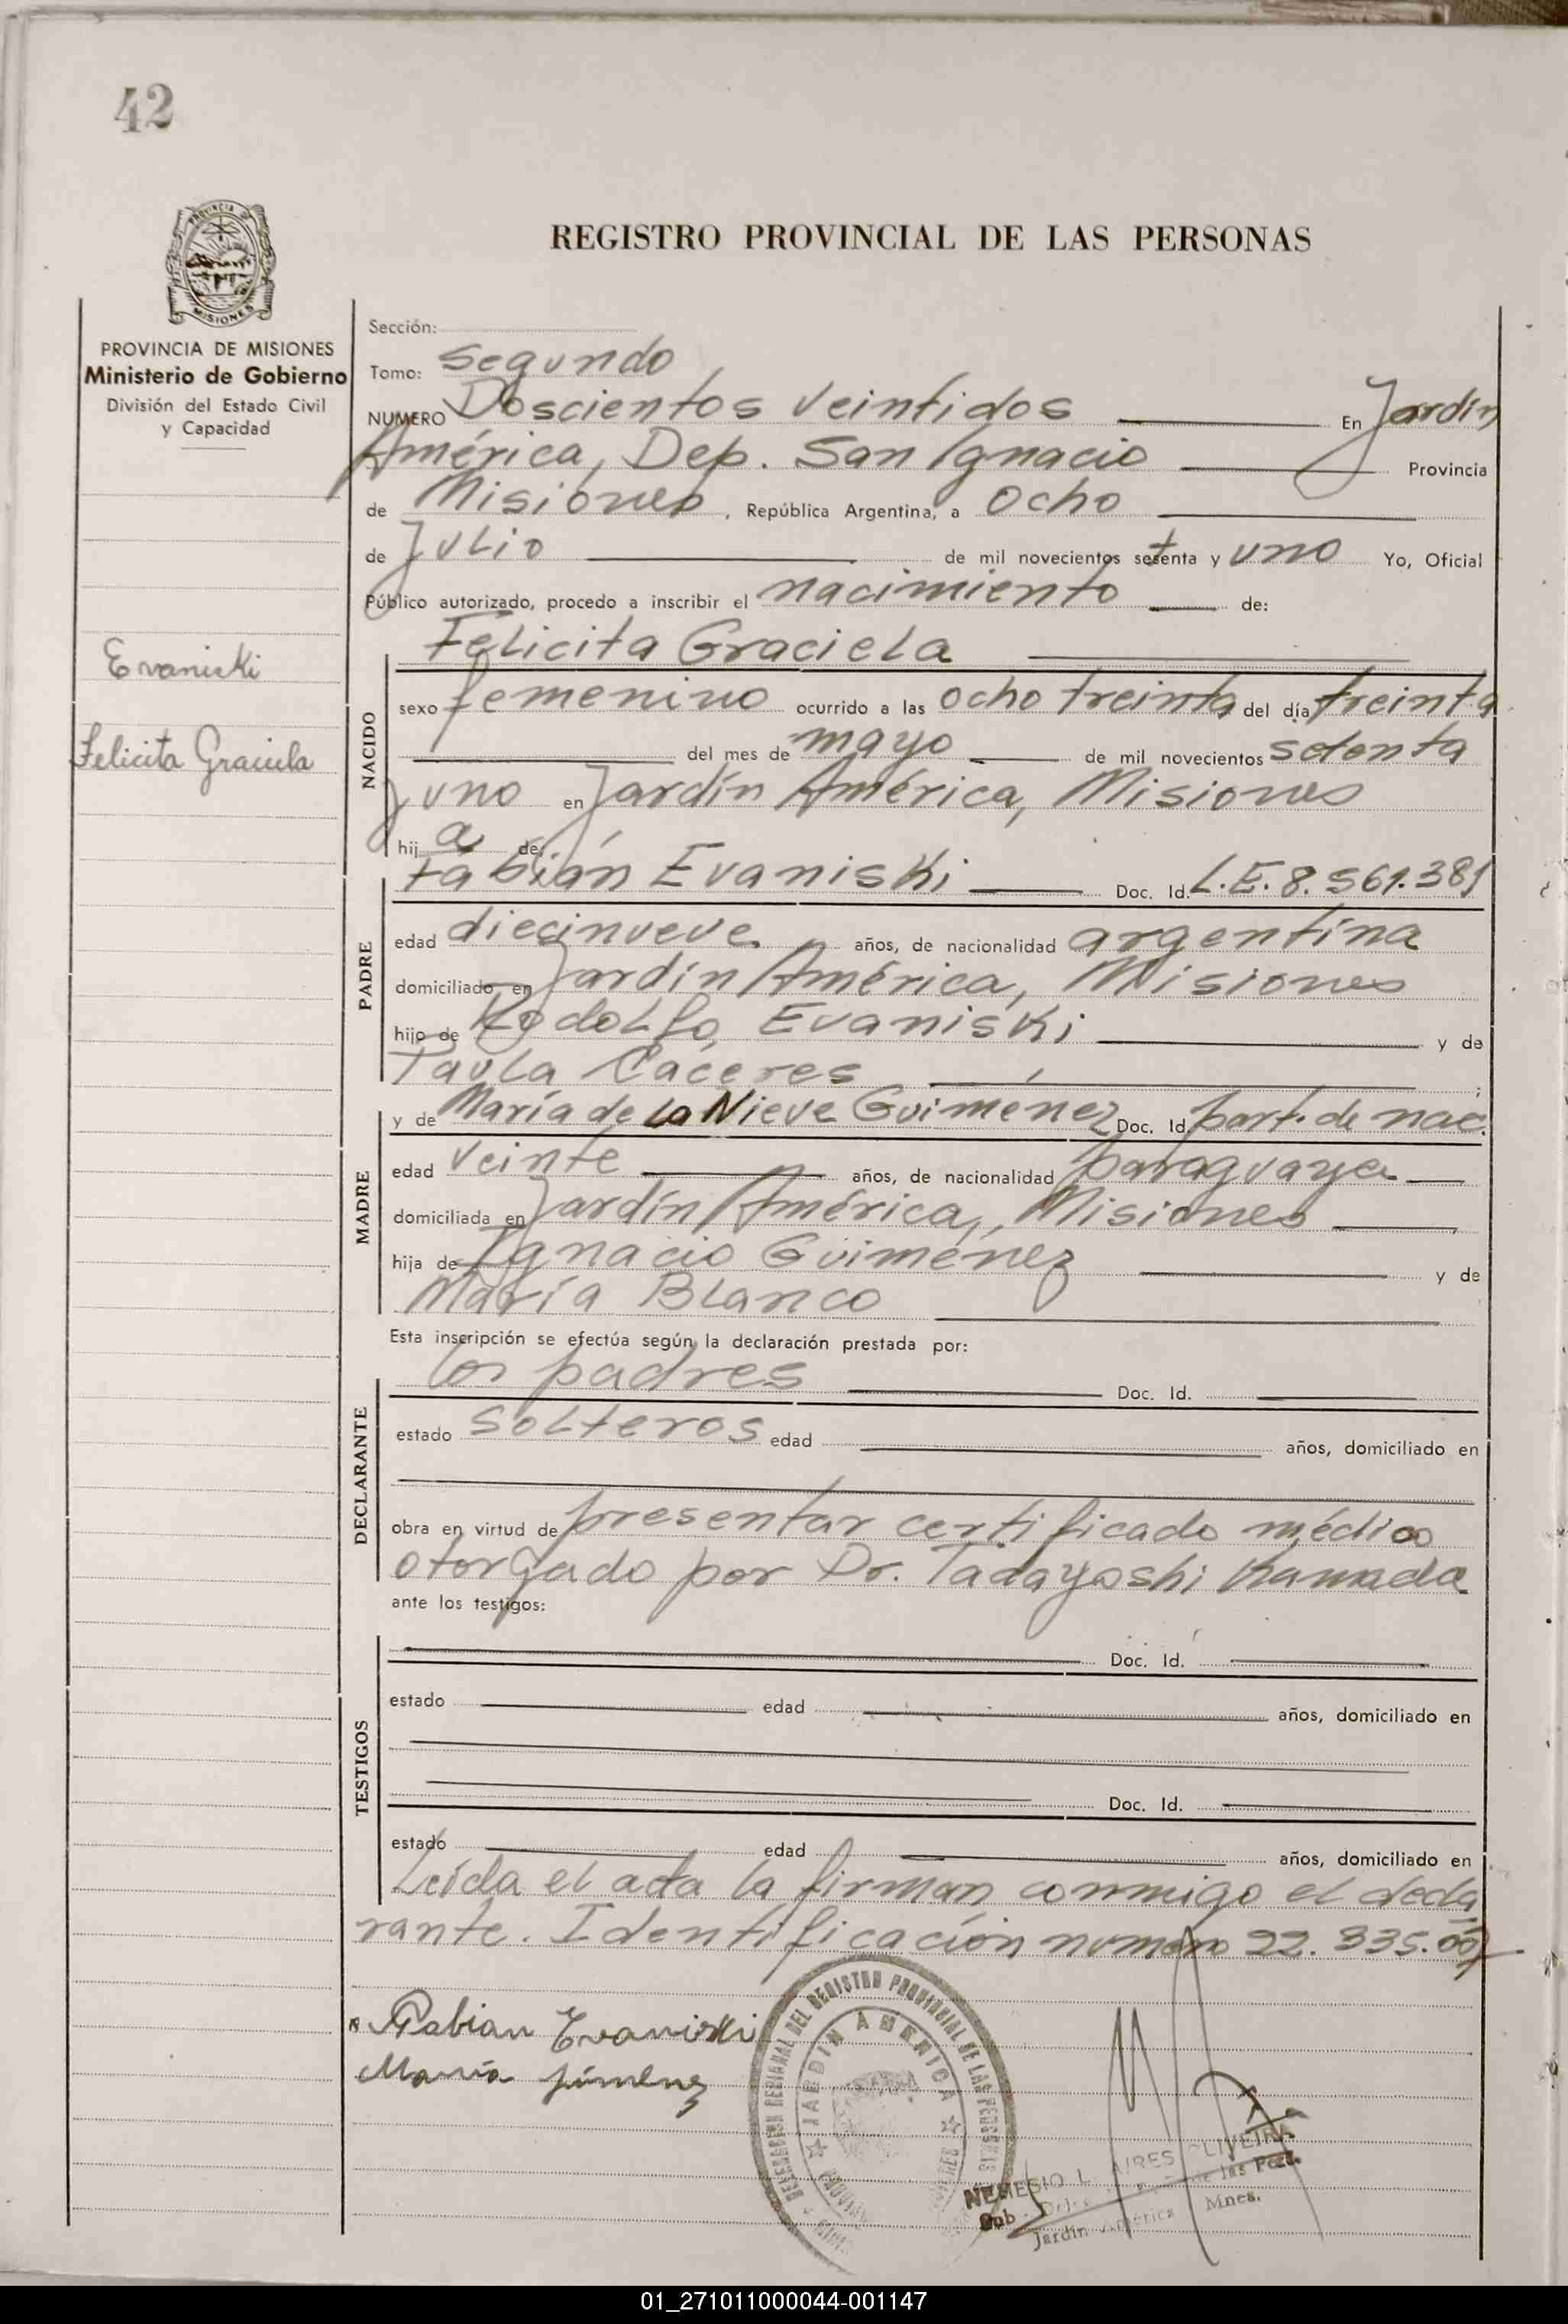 42
PROVINCIA
MISIONES
PROVINCIA DE MISIONES
Ministerio de Gobierno
División del Estado Civil
y Capacidad
Evaniski
Felicita Graciela
REGISTRO PROVINCIAL DE LAS PERSONAS
Sección:
Tomo: Segundo
NUMERO Doscientos Veintidos En Jardín
América, Dep. San Ignacio Provincia
de Misiones, República Argentina, a Ocho
de Julio de mil novecientos setenta y uno Yo, Oficial
Público autorizado, procedo a inscribir el nacimiento de:
Felicita Graciela
NACIDO
sexo femenino ocurrido a las ocho treinta del día treinta
del mes de mayo de mil novecientos setenta
y uno en Jardín América, Misiones
hija de:
Fabián Evaniski Doc. Id. L.E. 8.561.381
PADRE
edad diecinueve años, de nacionalidad argentina
domiciliado en Jardín América, Misiones
hijo de Rodolfo Evaniski y de
Paula Cáceres ;
MADRE
y de María de la Nieve Guiménez Doc. Id. part. de nac.
edad Veinte años, de nacionalidad paraguaya
domiciliada en Jardín América, Misiones
hija de Ignacio Guiménez y de
María Blanco
Esta inscripción se efectúa según la declaración prestada por:
DECLARANTE
los padres Doc. Id.
estado solteros edad años, domiciliado en
obra en virtud de presentar certificado médico
otorgado por Dr. Tadayoshi Kamada
ante los testigos:
TESTIGOS
Doc. Id.
estado edad años, domiciliado en
Doc. Id.
estado edad años, domiciliado en
Leída el acta la firman conmigo el decla
rante. Identificación número 22.335.007
Fabian Evaniski
María Jiménez
DELEGACION REGIONAL DEL REGISTRO PROVINCIAL DE LAS PERSONAS
JARDIN AMERICA
NEMESIO L. AIRES OLIVEIRA
Sub. de las Pers.
Jardín América Mnes.
01_271011000044-001147